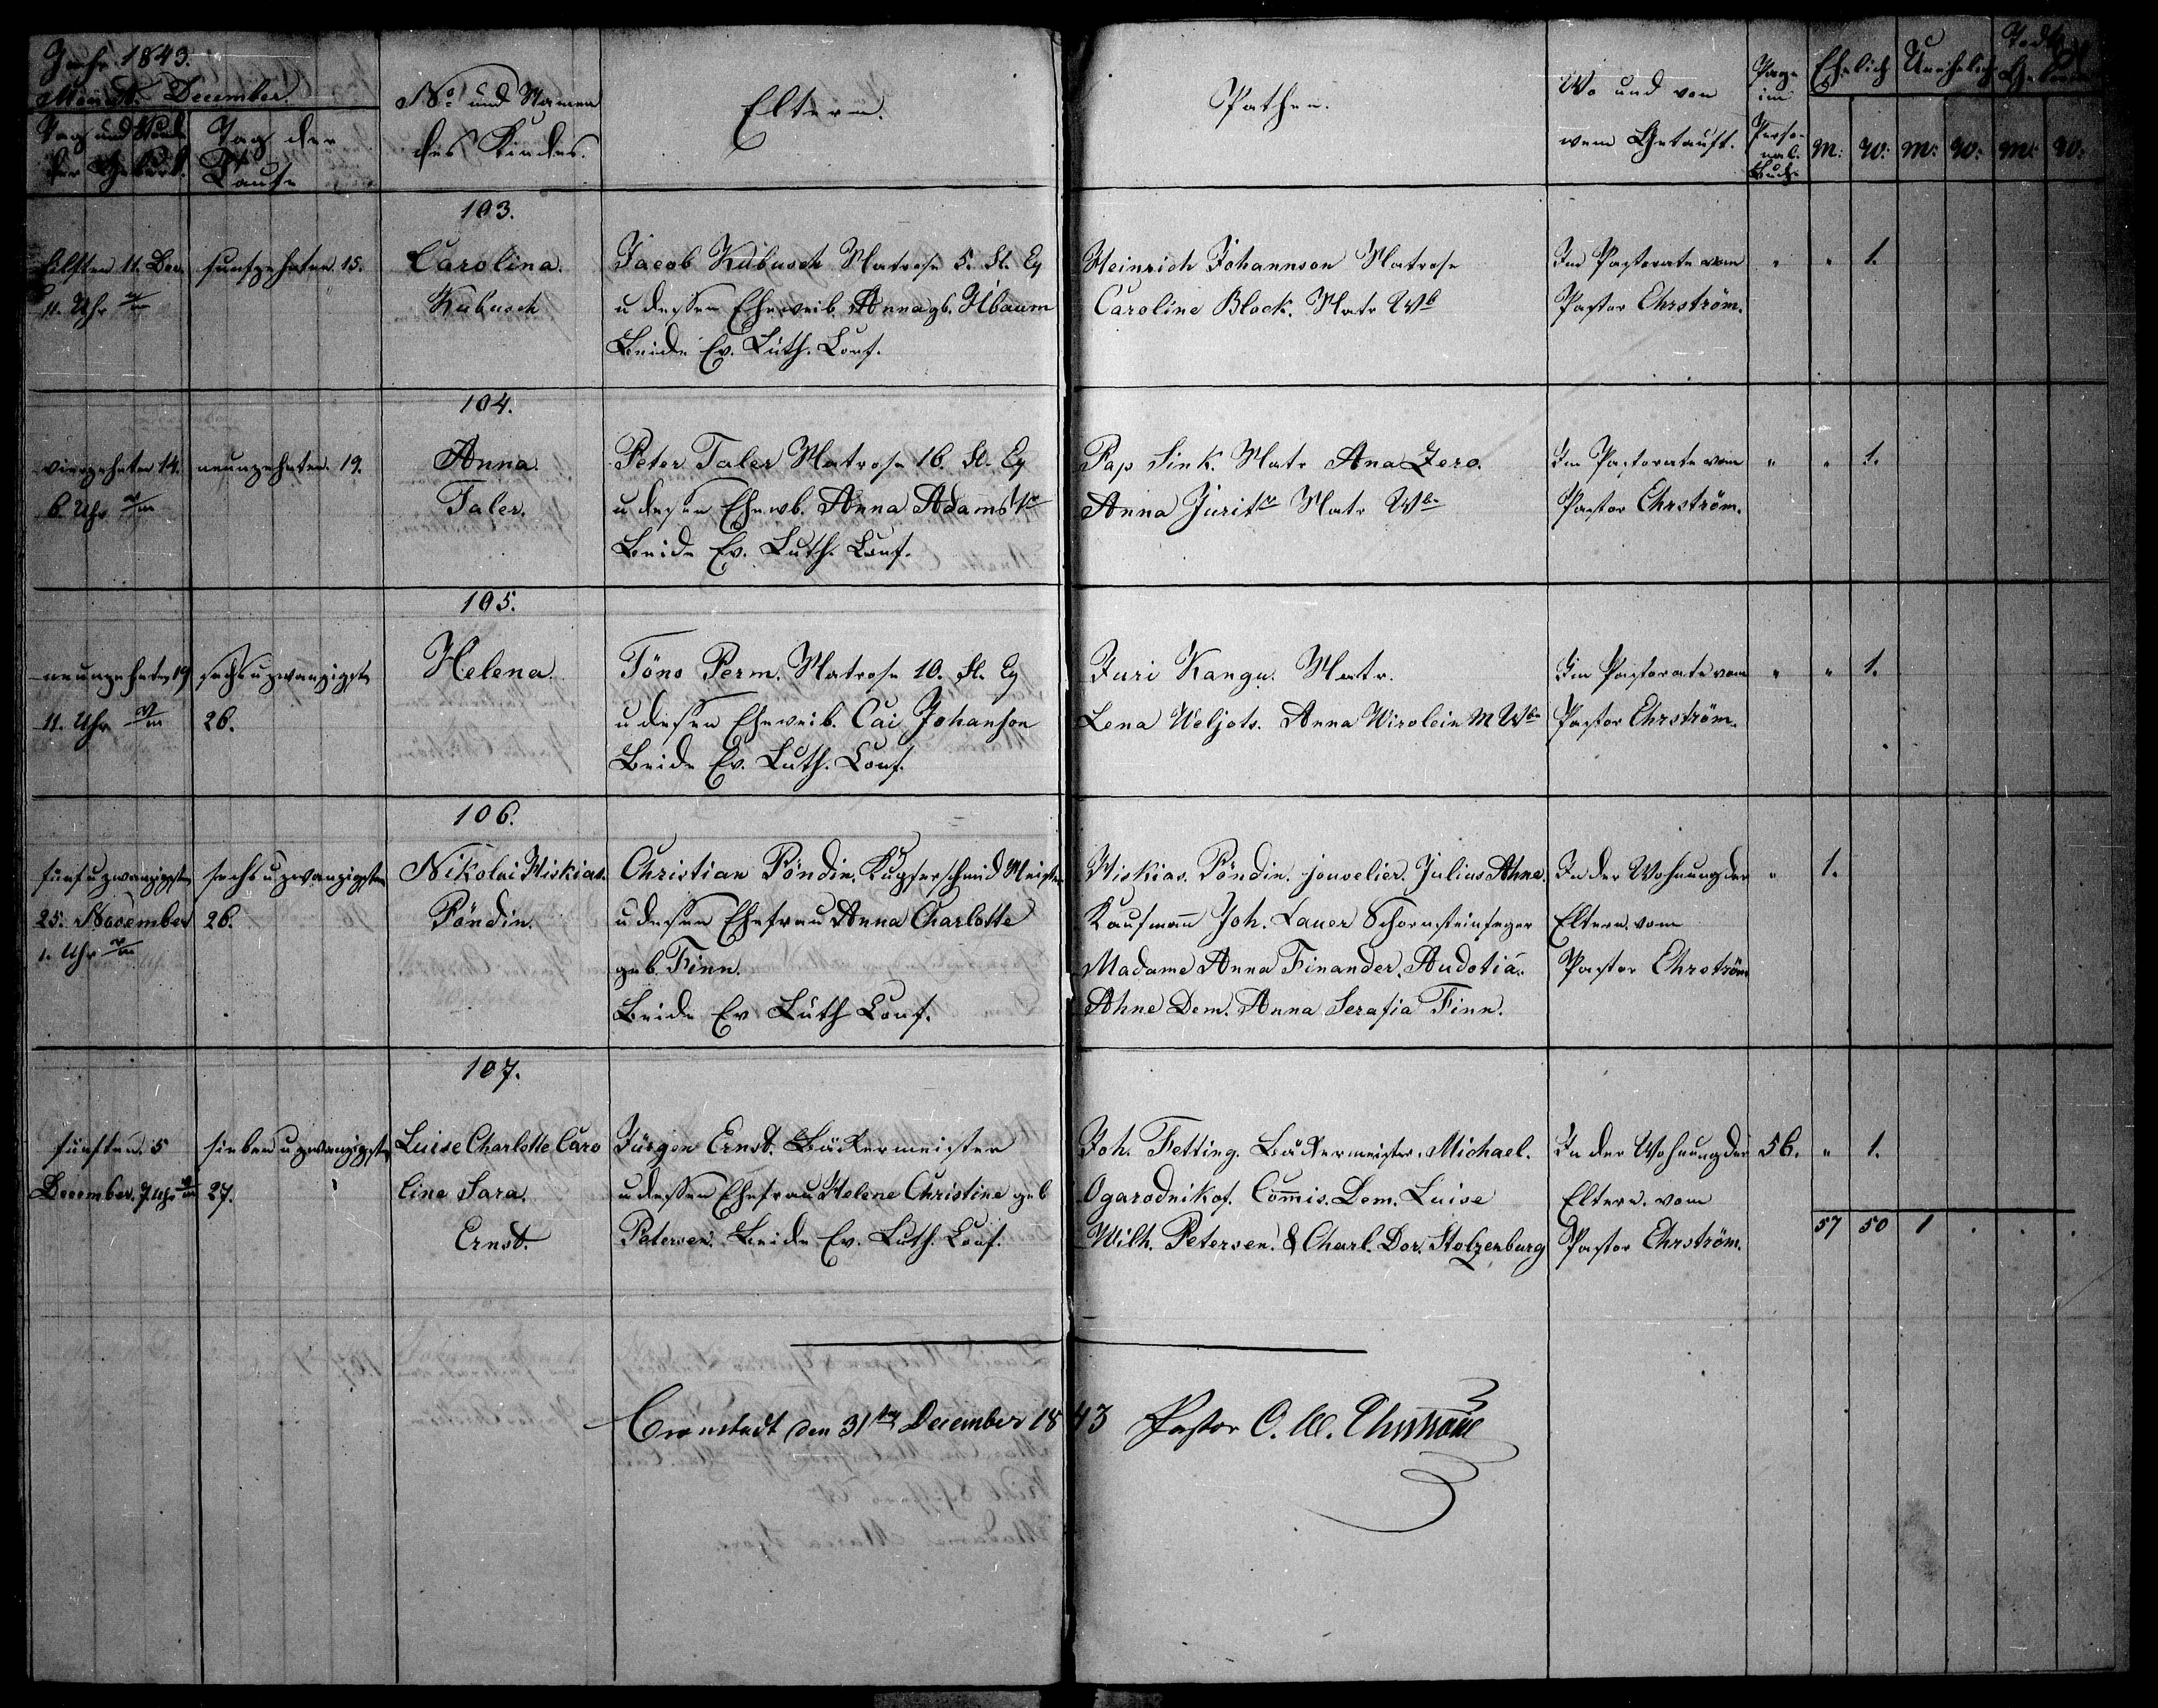 Jahr 1843.
Monat. December.
Tag und Stunde der Geburt.
Tag der Taufe
No und Namen
des Kindes.
Eltern.
Pathen.
Wo und von
wem Getauft.
Page im Personal-Buche
Ehelich Unehelich Todt Geboren
M: W: M: W: M: W:
103.
Eilften 11. Dec. funfzehnten. 15. Carolina. Jacob Kubusch Matrose 5. Fl. Eq Heinrich Johannson Matrose Im Pastorate vom " " 1.
11. Uhr Kubusch u dessen Eheweib Anna gb. Ubaum Caroline Block. Matr Wb Pastor Ehrström.
Beide Ev. Luth. Conf.
104.
vierzehnten 14. neunzehnten. 19. Anna. Peter Taler Matrose 16. Fl. Eq Pap Sink. Matr Ana Zero. Im Pastorate vom " " 1.
6. Uhr Taler. u dessen Ehewb. Anna Adams Anna Jurit Matr Wb Pastor Ehrström.
Beide Ev. Luth. Conf.
105.
neunzehnten 19 sechsuzwanzigsten Helena. Töno Perm. Matrose 10. Fl. Eq Juri Kangu. Matr. Im Pastorate vom " " 1.
11. Uhr 26. u dessen Eheweib. Cai Johanson Lena Weljots. Anna Wirolein M Wb Pastor Ehrström.
Beide Ev. Luth. Conf.
106.
fünfuzwanzigsten sechsuzwanzigsten Nikolai Hiskias. Christian Pöndin. Kupferschmid Meister Hiskias. Pöndin. jouvelier. Julius Ahne. In der Wohnung der " 1.
25. November 26. Pöndin. u dessen Ehefrau Anna Charlotte Kaufmann Joh. Lauer Schornsteinfeger Eltern. vom
1. Uhr geb. Finn. Madame Anna Finander. Audotiá. Pastor Ehrström
Beide Ev Luth Conf. Ahne Dem. Anna Serafia Finn.
107.
fünften. 5 siebenuzwanzigsten Luise Charlotte Caro Jürgen Ernst. Bäckermeister Joh. Fetting. Bäckermeister. Michael. In der Wohnung der 56. " 1.
December. 7. Uhr 27. line Sara. u dessen Ehefrau Helene Christine geb Ogarodnikof. Commis. Dem. Luise Eltern. vom
Ernst. Petersen. Beide Ev. Luth. Conf. Wilh. Petersen. & Charl. Dor. Stolzenburg Pastor Ehrström.
57 50 1 . . .
Cronstadt den 31ten December 1843 Pastor C. W. Ehrström